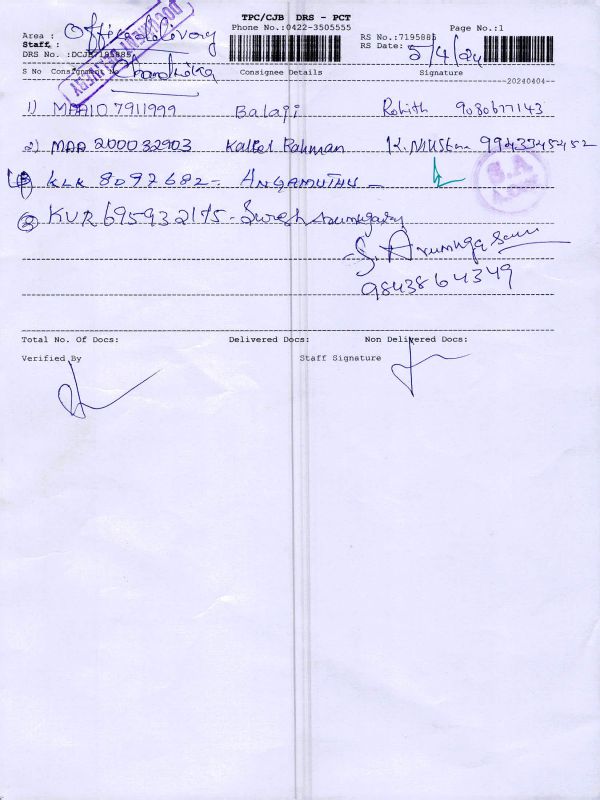 TPC/CJB DRS - PCT
Phone No.:0422-3505555 Page No.:1
Area : Office delivory RS No.:7195885
Staff : RS Date: 5/4/24
DRS No. :DCJB7195885
DOOR DELIVERY
S No Consignment No Consignee Details Signature
20240404
1) MAA10 7911999 Balaji Rohith 9080677143
2) MAA 200032903 Rahman 9943345452
KLK 8097682 - ANGAMUTHU -
S.A
③ KUR 695932175 - Suresh Arumugam
S. Arumuga Sami
9843864349
Total No. Of Docs: Delivered Docs: Non Delivered Docs:
Verified By Staff Signature